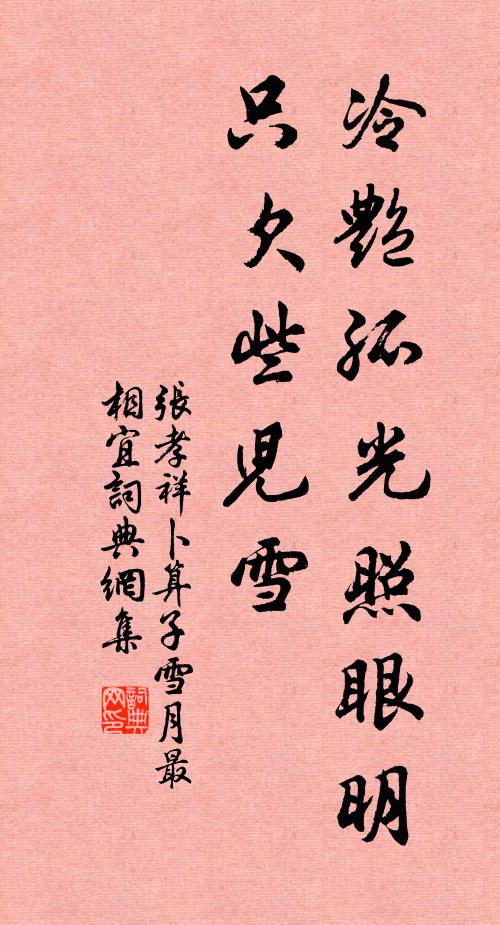 冷艷孤光照眼明
只欠些兒雪
張孝祥卜算子雪月最
相宜詞典網集
詞典
网印